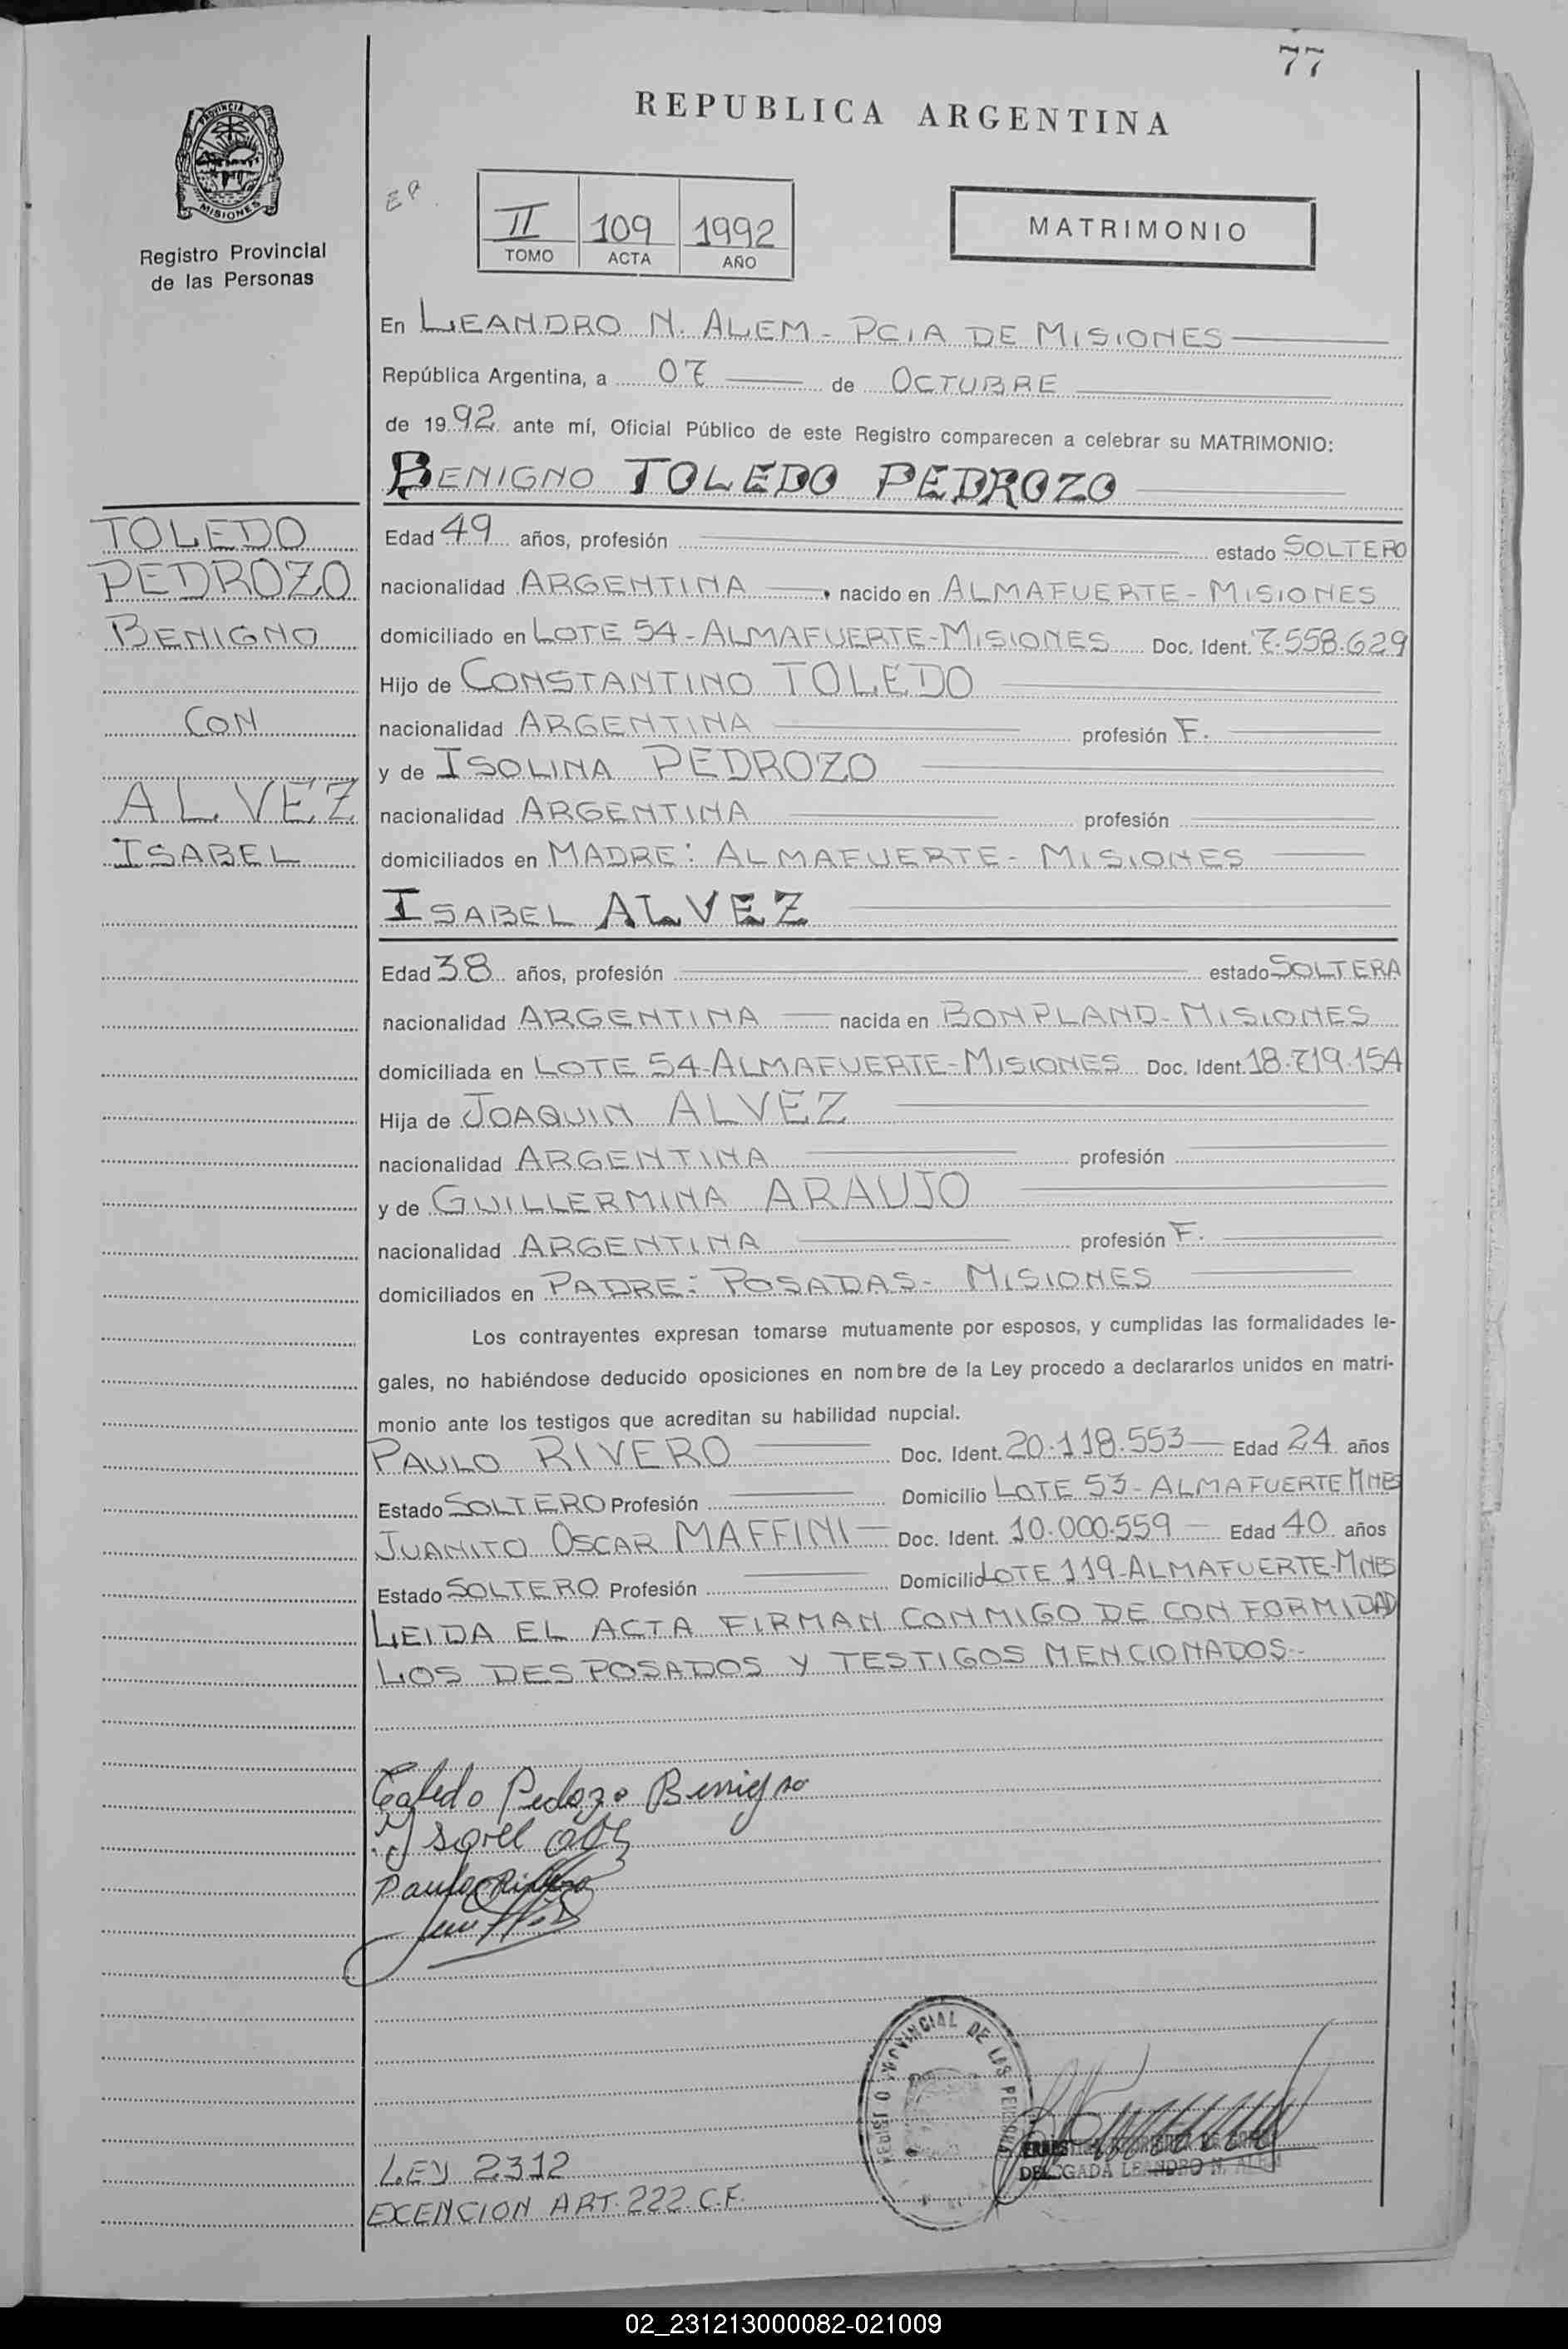 77
REPUBLICA ARGENTINA
PROVINCIA DE
MISIONES
Registro Provincial
de las Personas
II 109 1992
TOMO ACTA AÑO
MATRIMONIO
En LEANDRO N. ALEM - PCIA DE MISIONES
República Argentina, a 07 de OCTUBRE
de 1992 ante mí, Oficial Público de este Registro comparecen a celebrar su MATRIMONIO:
BENIGNO TOLEDO PEDROZO
TOLEDO
PEDROZO
BENIGNO
CON
ALVEZ
ISABEL
Edad 49 años, profesión estado SOLTERO
nacionalidad ARGENTINA nacido en ALMAFUERTE - MISIONES
domiciliado en LOTE 54 - ALMAFUERTE - MISIONES Doc. Ident. 7.558.629
Hijo de CONSTANTINO TOLEDO
nacionalidad ARGENTINA profesión F.
y de ISOLINA PEDROZO
nacionalidad ARGENTINA profesión
domiciliados en MADRE: ALMAFUERTE - MISIONES
ISABEL ALVEZ
Edad 38 años, profesión estado SOLTERA
nacionalidad ARGENTINA nacida en BONPLAND - MISIONES
domiciliada en LOTE 54 - ALMAFUERTE - MISIONES Doc. Ident. 18.719.154
Hija de JOAQUIN ALVEZ
nacionalidad ARGENTINA profesión
y de GUILLERMINA ARAUJO
nacionalidad ARGENTINA profesión F.
domiciliados en PADRE: POSADAS - MISIONES
Los contrayentes expresan tomarse mutuamente por esposos, y cumplidas las formalidades le-
gales, no habiéndose deducido oposiciones en nombre de la Ley procedo a declararlos unidos en matri-
monio ante los testigos que acreditan su habilidad nupcial.
PAULO RIVERO Doc. Ident. 20.118.553 Edad 24 años
Estado SOLTERO Profesión Domicilio LOTE 53 - ALMAFUERTE MNES
JUANITO OSCAR MAFFINI Doc. Ident. 10.000.559 Edad 40 años
Estado SOLTERO Profesión Domicilio LOTE 119 - ALMAFUERTE - MNES
LEIDA EL ACTA FIRMAN CONMIGO DE CONFORMIDAD
LOS DESPOSADOS Y TESTIGOS MENCIONADOS -
Toledo Pedozo Benigno
Paulo Rivero
PROVINCIAL DE LAS
DELEGADA LEANDRO N. ALEM
LEY 2312
EXENCION ART. 222 C.F.
02_231213000082-021009